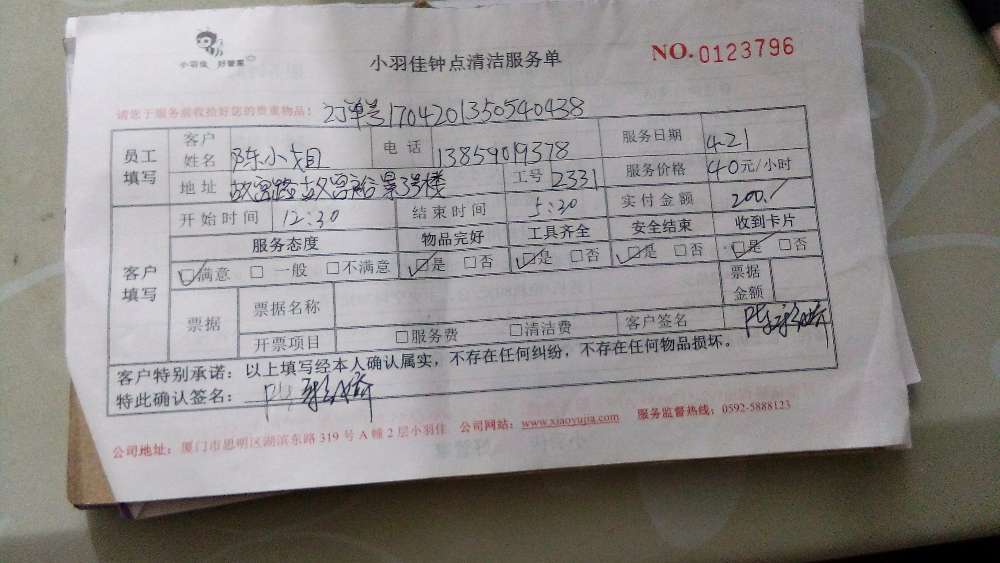 小羽佳 好管家
小羽佳钟点清洁服务单
NO.0123796
请您于服务前收拾好您的贵重物品:
订单号1704201350540438
员工填写 客户姓名 陈小姐 电话 13859019378 服务日期 4.21
地址 故宫路故宫裕景3号楼 工号 2331 服务价格 40元/小时
客户填写 开始时间 12:30 结束时间 5:30 实付金额 200.
服务态度 物品完好 工具齐全 安全结束 收到卡片
☑满意 □一般 □不满意 ☑是 □否 ☑是 □否 ☑是 □否 ☑是 □否
票据 票据名称 票据金额
开票项目 □服务费 □清洁费 客户签名
客户特别承诺:以上填写经本人确认属实,不存在任何纠纷,不存在任何物品损坏。
特此确认签名:
公司地址:厦门市思明区湖滨东路319号A幢2层小羽佳 公司网站:www.xiaoyujia.com 服务监督热线:0592-5888123